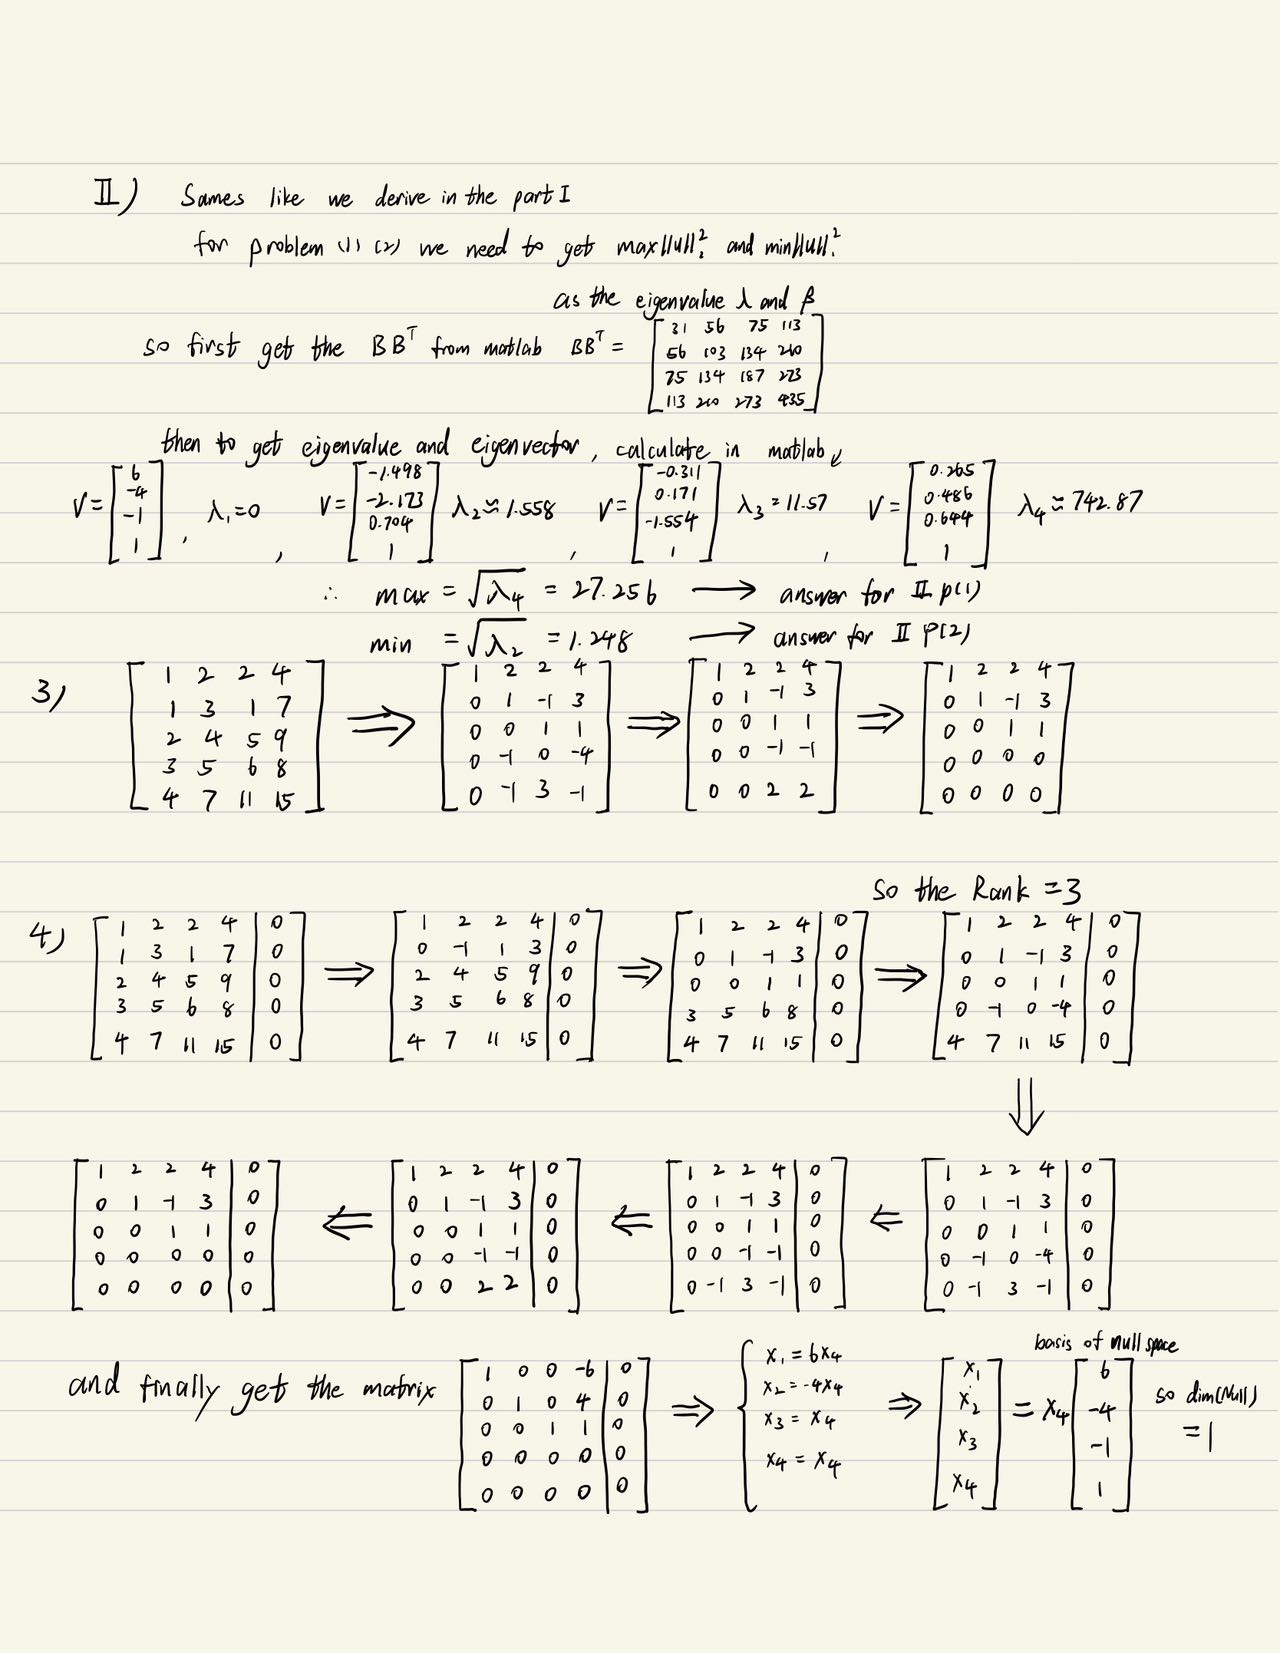 II) Sames like we derive in the part I
for problem (1) (2) we need to get max||u||₂² and min||u||₂²
as the eigenvalue λ and β
so first get the BBᵀ from matlab BBᵀ = [31 56 75 113; 56 103 134 210; 75 134 187 273; 113 210 273 435]
then to get eigenvalue and eigenvector, calculate in matlab
V = [6; -4; -1; 1], λ₁=0 , V = [-1.498; -2.173; 0.704; 1] λ₂≈1.558 , V = [-0.311; 0.171; -1.554; 1] λ₃=11.57 , V = [0.265; 0.486; 0.644; 1] λ₄≈742.87
∴ max = √λ₄ = 27.256 → answer for II p(1)
min = √λ₂ = 1.248 → answer for II P(2)
3) [1 2 2 4; 1 3 1 7; 2 4 5 9; 3 5 6 8; 4 7 11 15] ⇒ [1 2 2 4; 0 1 -1 3; 0 0 1 1; 0 -1 0 -4; 0 -1 3 -1] ⇒ [1 2 2 4; 0 1 -1 3; 0 0 1 1; 0 0 -1 -1; 0 0 2 2] ⇒ [1 2 2 4; 0 1 -1 3; 0 0 1 1; 0 0 0 0; 0 0 0 0]
so the Rank = 3
4) [1 2 2 4 | 0; 1 3 1 7 | 0; 2 4 5 9 | 0; 3 5 6 8 | 0; 4 7 11 15 | 0] ⇒ [1 2 2 4 | 0; 0 -1 1 3 | 0; 2 4 5 9 | 0; 3 5 6 8 | 0; 4 7 11 15 | 0] ⇒ [1 2 2 4 | 0; 0 1 -1 3 | 0; 0 0 1 1 | 0; 3 5 6 8 | 0; 4 7 11 15 | 0] ⇒ [1 2 2 4 | 0; 0 1 -1 3 | 0; 0 0 1 1 | 0; 0 -1 0 -4 | 0; 4 7 11 15 | 0]
⇓
[1 2 2 4 | 0; 0 1 -1 3 | 0; 0 0 1 1 | 0; 0 0 0 0 | 0; 0 0 0 0 | 0] ⇐ [1 2 2 4 | 0; 0 1 -1 3 | 0; 0 0 1 1 | 0; 0 0 -1 -1 | 0; 0 0 2 2 | 0] ⇐ [1 2 2 4 | 0; 0 1 -1 3 | 0; 0 0 1 1 | 0; 0 0 -1 -1 | 0; 0 -1 3 -1 | 0] ⇐ [1 2 2 4 | 0; 0 1 -1 3 | 0; 0 0 1 1 | 0; 0 -1 0 -4 | 0; 0 -1 3 -1 | 0]
basis of null space
and finally get the matrix [1 0 0 -6 | 0; 0 1 0 4 | 0; 0 0 1 1 | 0; 0 0 0 0 | 0; 0 0 0 0 | 0] ⇒ { x₁ = 6x₄; x₂ = -4x₄; x₃ = x₄; x₄ = x₄ ⇒ [x₁; x₂; x₃; x₄] = x₄ [6; -4; -1; 1] so dim(Null) = 1